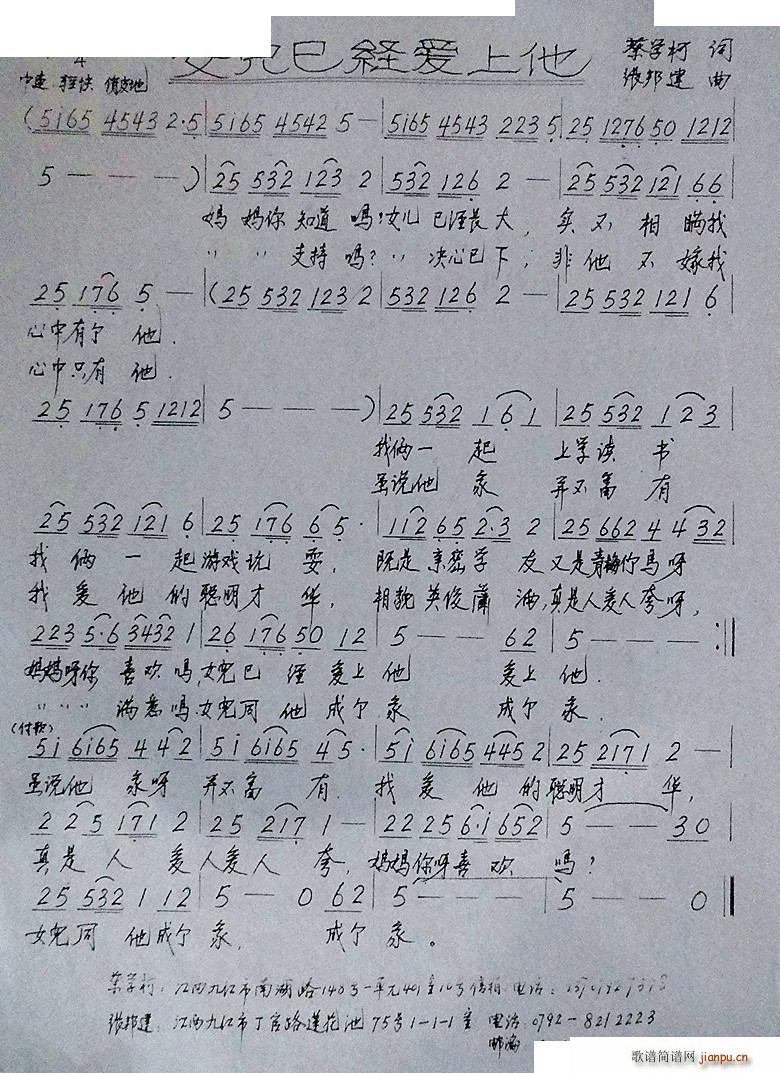 女児已経爱上他
4
蔡学柯 词
中速 轻快 俏皮地
张邦建 曲
(5i65 4543 2·5|5i65 4542 5 —|5i65 4543 223 5|25 1276 50 1212
5 — — — )|25 532 123 2|532 126 2 —|25 532 121 66
妈妈你知道吗?女儿已经长大,实不相瞒我
〃 〃 支持吗?〃 决心已下;非他不嫁我
25 176 5 —|(25 532 123 2|532 126 2 —|25 532 121 6
心中有了他.
心中只有他.
25 176 5 1212|5 — — — )|25 532 1 6 1|25 532 1 2 3
我俩一起 上学读书
虽说他家 并不富有
25 532 121 6|25 176 6 5·|112 65 2·3 2|25 662 4 4 32
我俩一起游戏玩耍,既是亲密学友又是青梅竹马呀
我爱他的聪明才华,相貌英俊潇洒,真是人爱人夸呀,
223 5·6 3432 1|26 176 50 12|5 — — 62|5 — — — :‖
妈妈呀你喜欢吗,女児已经爱上他 爱上他.
〃 〃 〃 满意吗,女児同他成了家 成了家.
(付歌)
5i 6i65 4 42|5i 6i65 4 5·|5i 6i65 4452|25 2171 2 —
虽说他家呀并不富有.我爱他的聪明才华,
2 25 171 2|25 217 1 —|22 225 6·i 1652|5 — — 30
真是人爱人爱人夸,妈妈你呀喜欢吗?
25 532 1 12|5 — 0 62|5 — — —|5 — — 0‖
女児同他成了家,成了家。
蔡学柯:江西九江市南湖路140号一单元401室10号信箱 电话:
张邦建:江西九江市丁官路莲花池75号1-1-1室 电话:0792-8212223
邮编
歌谱简谱网 jianpu.cn